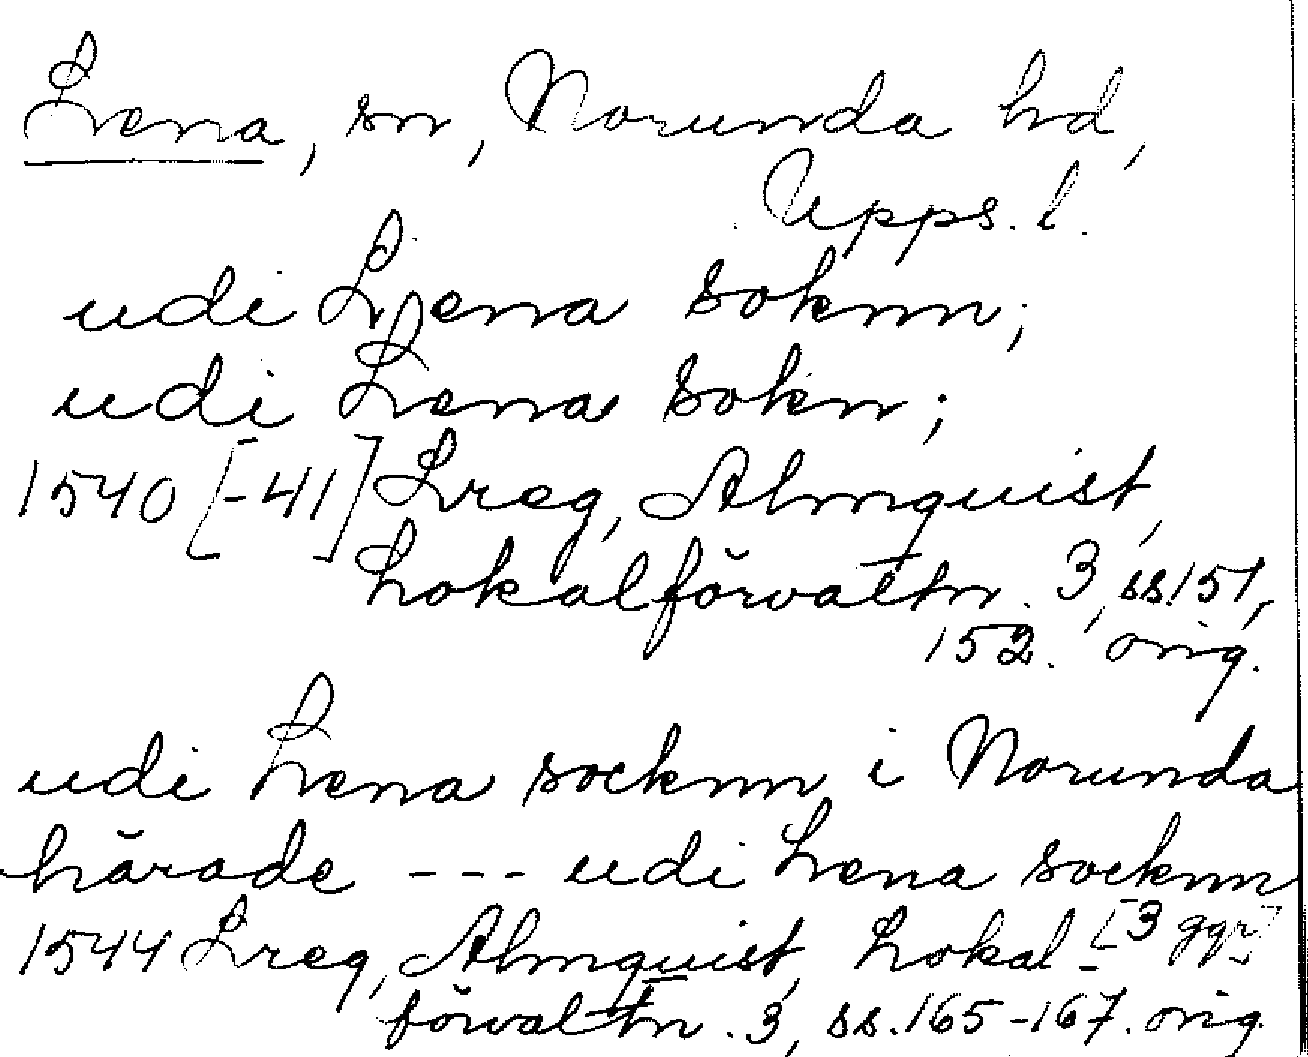 Lena, sn, Norunda hd,
Upps. l.
udi Lena soknn;
udi Lena sokn;
1540 [-41] Lreg, Almquist,
Lokalförvaltn. 3, ss. 151,
152. orig.
udi Lena socknn i Norunda
härade --- udi Lena socknn
[3 ggr]
1544 Lreg, Almquist, Lokal-
förvaltn. 3, ss. 165-167. orig.